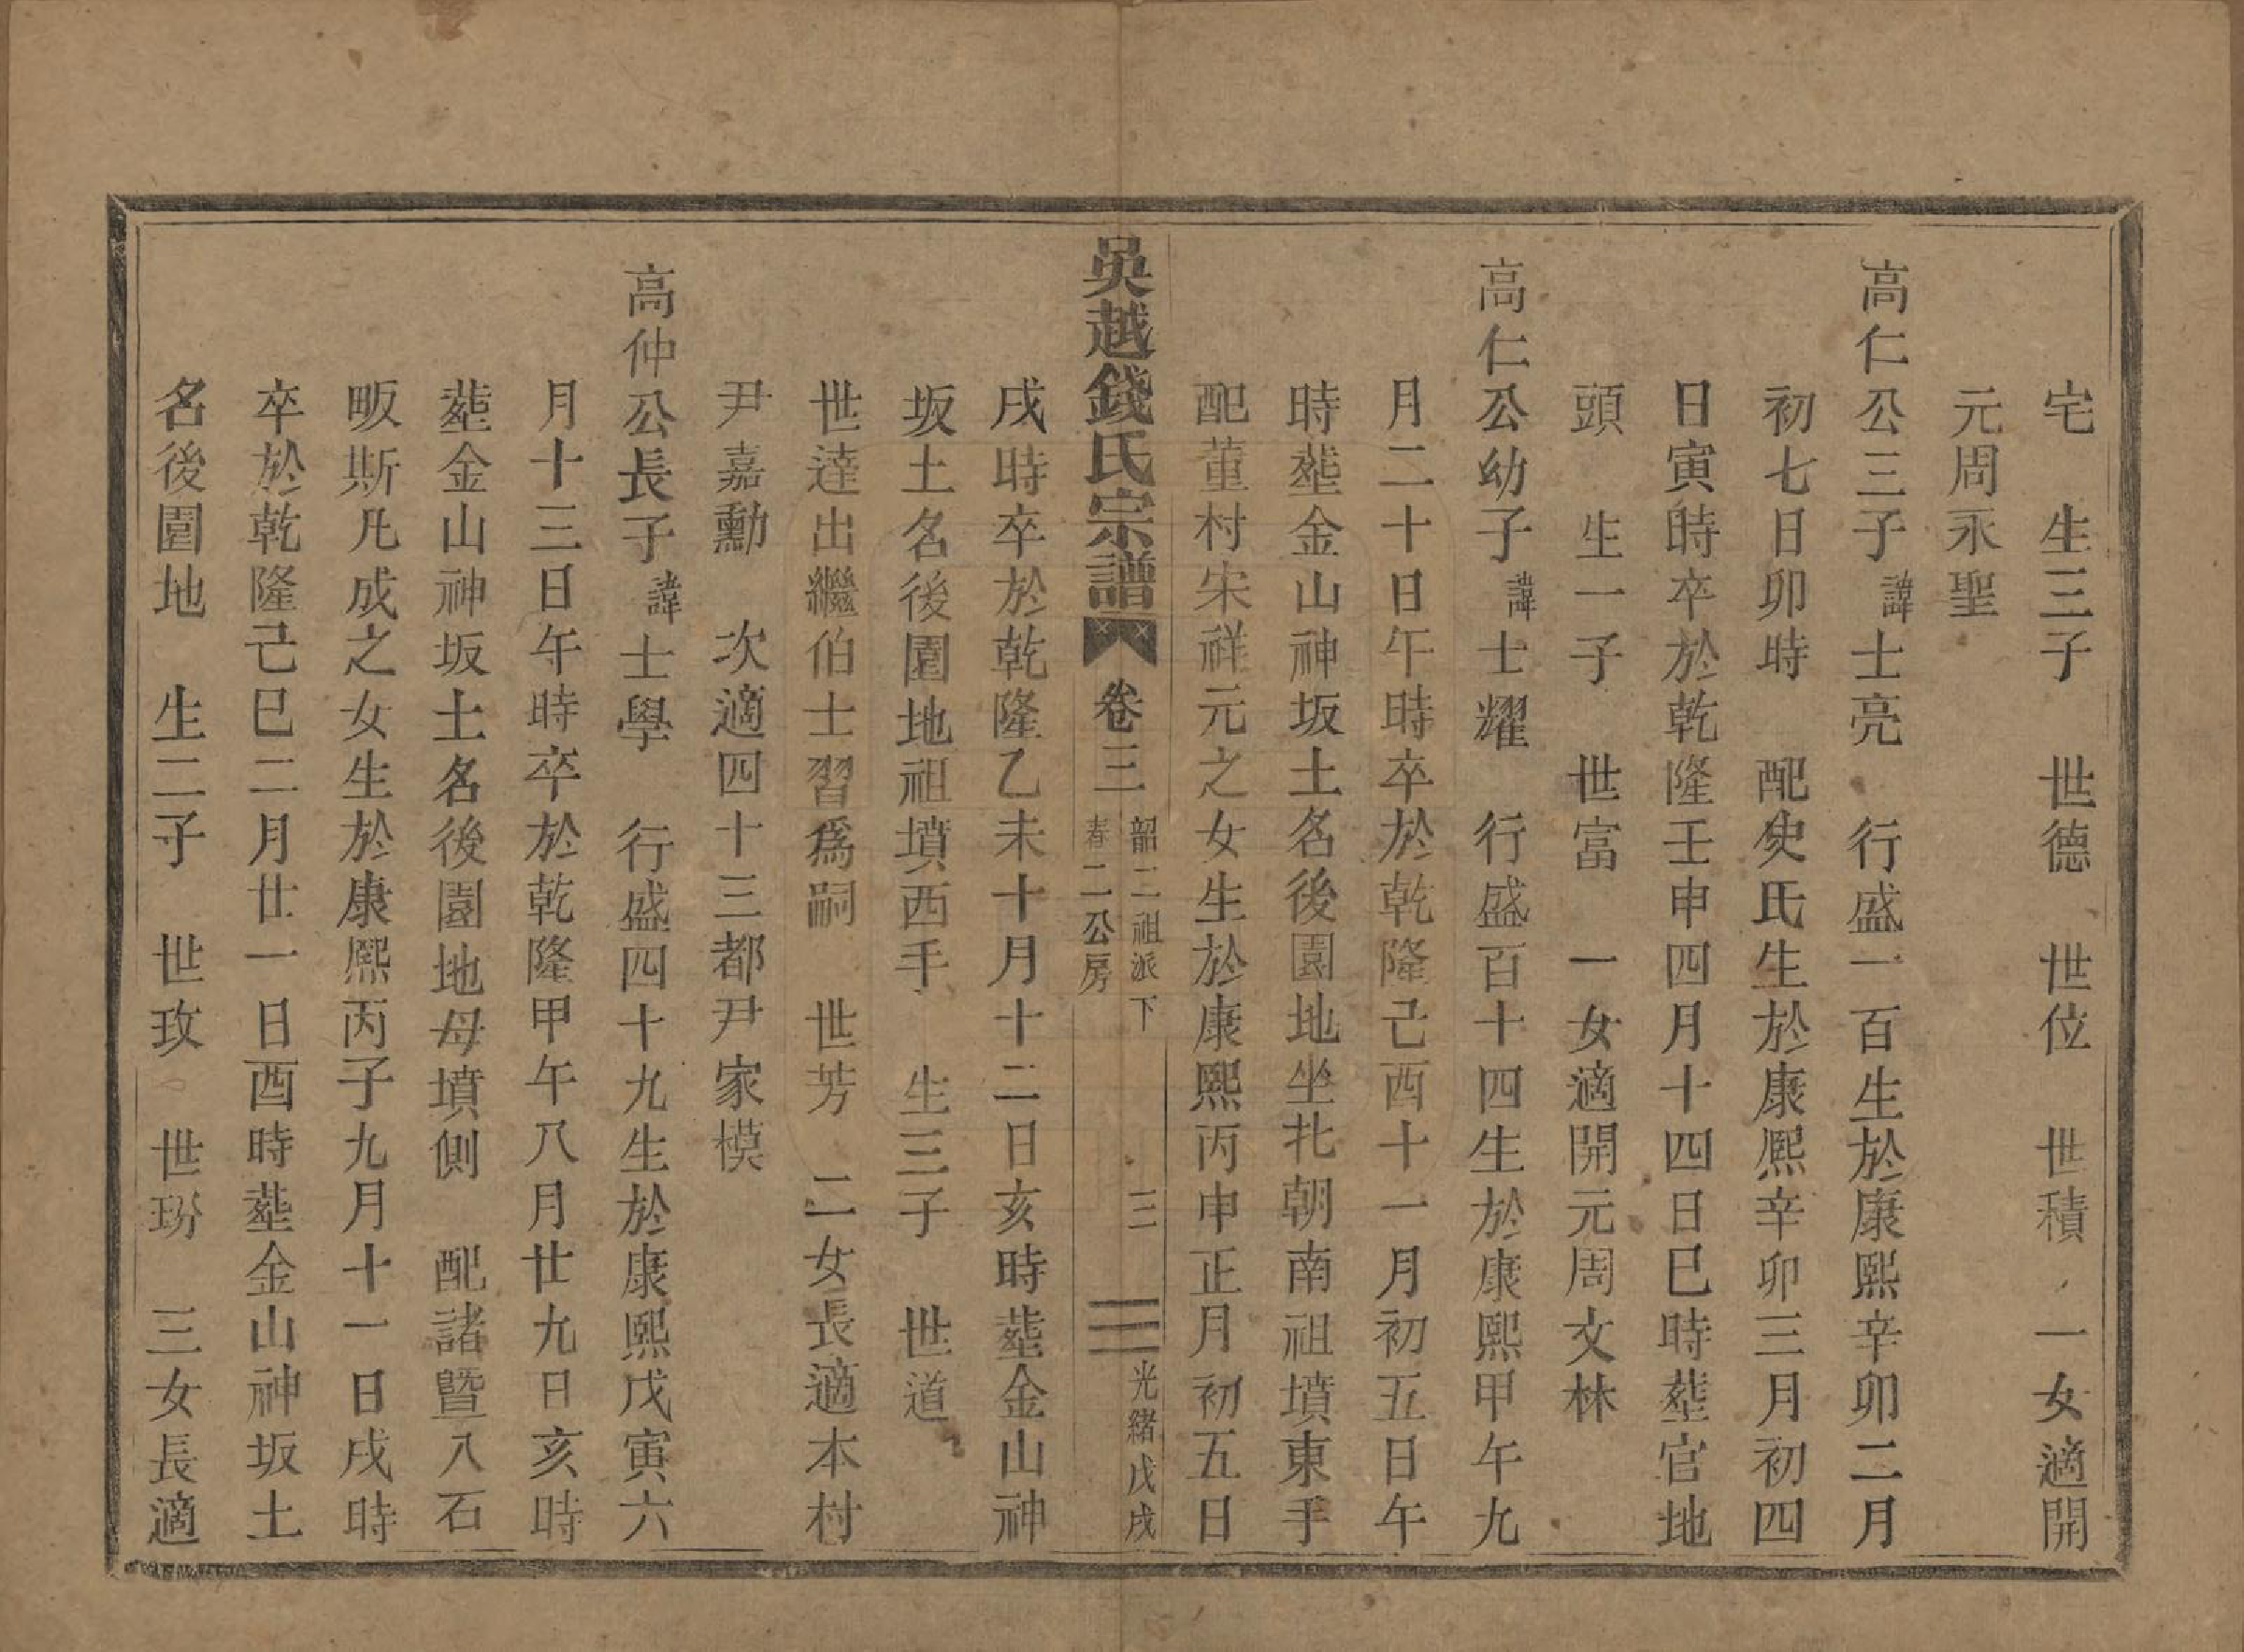 宅 生三子 世德 世位 世積 一女適開
元周永聖
高仁公三子諱士亮 行盛一百生於康熙辛卯二月
初七日卯時 配史氏生於康熙辛卯三月初四
日寅時卒於乾隆壬申四月十四日巳時塟官地
頭 生一子 世富 一女適開元周文林
高仁公幼子諱士耀 行盛百十四生於康熙甲午九
月二十日午時卒於乾隆己酉十一月初五日午
時塟金山神坂土名後園地坐北朝南祖墳東手
配董村宋祥元之女生於康熙丙申正月初五日
吳越錢氏宗譜 卷三 韶二祖派下 春二公房 三 光緒戊戌
戌時卒於乾隆乙未十月十二日亥時塟金山神
坂土名後園地祖墳西手 生三子 世道
世達出繼伯士習爲嗣 世芳 二女長適本村
尹嘉勳 次適四十三都尹家模
高仲公長子諱士學 行盛四十九生於康熙戊寅六
月十三日午時卒於乾隆甲午八月廿九日亥時
塟金山神坂土名後園地母墳側 配諸暨八石
畈斯凡成之女生於康熙丙子九月十一日戌時
卒於乾隆己巳二月廿一日酉時塟金山神坂土
名後園地 生二子 世玫 世玢 三女長適